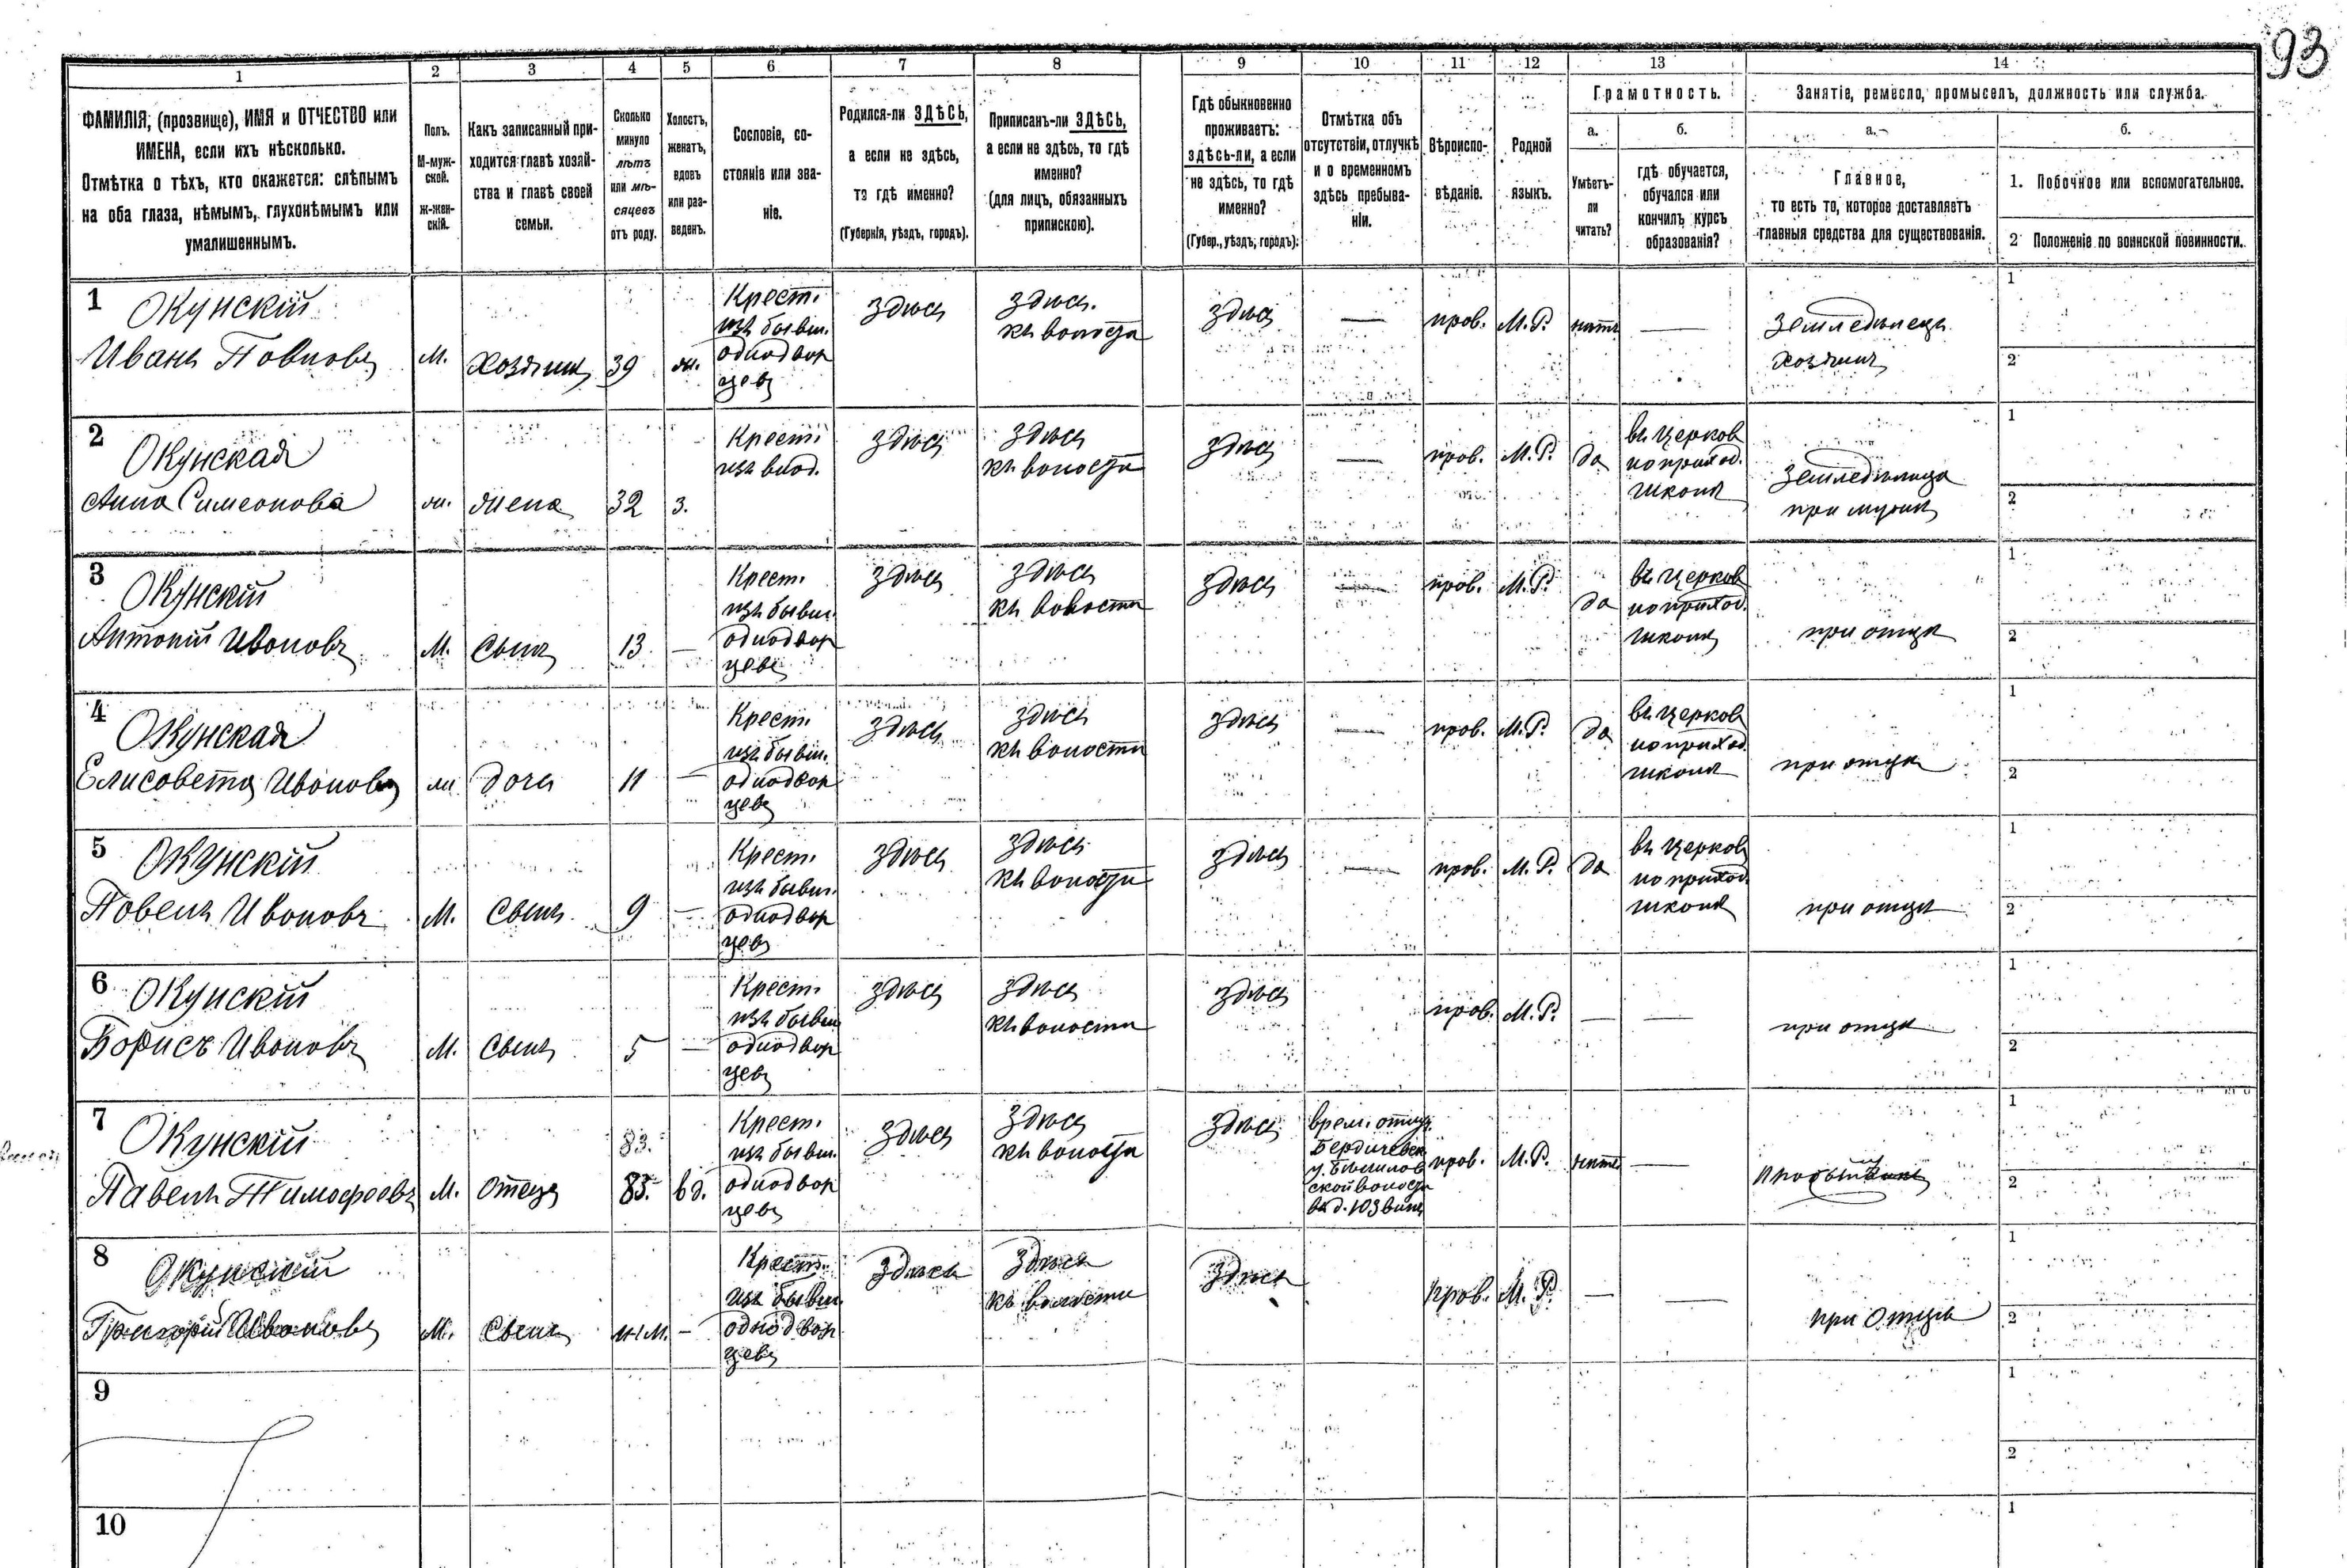 93
1 2 3 4 5 6 7 8 9 10 11 12 13 14
ФАМИЛІЯ, (прозвище), ИМЯ и ОТЧЕСТВО или
ИМЕНА, если ихъ нѣсколько.
Отмѣтка о тѣхъ, кто окажется: слѣпымъ
на оба глаза, нѣмымъ, глухонѣмымъ или
умалишеннымъ.
Полъ.
М-муж-
ской.
ж-жен-
скій.
Какъ записанный при-
ходится главѣ хозяй-
ства и главѣ своей
семьи.
Сколько
минуло
лѣтъ
или мѣ-
сяцевъ
отъ роду.
Холостъ,
женатъ,
вдовъ
или раз-
веденъ.
Сословіе, со-
стояніе или зва-
ніе.
Родился-ли ЗДѢСЬ,
а если не здѣсь,
то гдѣ именно?
(Губернія, уѣздъ, городъ).
Приписанъ-ли ЗДѢСЬ,
а если не здѣсь, то гдѣ
именно?
(для лицъ, обязанныхъ
припискою).
Гдѣ обыкновенно
проживаетъ:
здѣсь-ли, а если
не здѣсь, то гдѣ
именно?
(Губер., уѣздъ, городъ).
Отмѣтка объ
отсутствіи, отлучкѣ
и о временномъ
здѣсь пребыва-
ніи.
Вѣроиспо-
вѣданіе.
Родной
языкъ.
Грамотность.
а.
Умѣетъ-
ли
читать?
б.
гдѣ обучается,
обучался или
кончилъ курсъ
образованія?
Занятіе, ремесло, промыселъ, должность или служба.
а.
Главное,
то есть то, которое доставляетъ
главныя средства для существованія.
б.
1. Побочное или вспомогательное.
2 Положеніе по воинской повинности.
1
Окунскій
Иванъ Повловъ
М.
Хозяинъ
39
ж.
Крест.
изъ бывш.
однодвор
цевъ
здѣсь
здѣсь.
къ волости
здѣсь
—
прав.
М.Р.
нѣтъ
—
Земледѣлецъ
хозяинъ
1
2
2
Окунская
Анна Симеонова
ж.
жена
32
з.
Крест.
изъ влад.
здѣсь
здѣсь
къ волости
здѣсь
—
прав.
М.Р.
да
въ церков
но приход.
школѣ
Земледѣлица
при мужѣ
1
2
3
Окунскій
Антоній Ивановъ
М.
Сынъ
13
—
Крест.
изъ бывш.
однодвор
цевъ
здѣсь
здѣсь
къ волости
здѣсь
—
прав.
М.Р.
да
въ церков
но приход.
школѣ
при отцѣ
1
2
4
Окунская
Елисовета Иванова
ж
дочь
11
—
Крест.
изъ бывш.
однодвор
цевъ
здѣсь
здѣсь
къ волости
здѣсь
—
прав.
М.Р.
да
въ церков
но приход
школѣ
при отцѣ
1
2
5
Окунскій
Повелъ Ивановъ
М.
Сынъ
9
—
Крест.
изъ бывш.
однодвор
цевъ
здѣсь
здѣсь
къ волости
здѣсь
—
прав.
М.Р.
да
въ церков
но приход.
школѣ
при отцѣ
1
2
6
Окунскій
Борисъ Ивановъ
М.
Сынъ
5
—
Крест.
изъ бывш
однодвор
цевъ
здѣсь
здѣсь
къ волости
здѣсь
прав.
М.Р.
—
—
при отцѣ
1
2
7
Окунскій
Павелъ Тимофеевъ
М.
Отецъ
83.
83.
вд.
Крест.
изъ бывш.
однодвор
цевъ
здѣсь
здѣсь
къ волости
здѣсь
врем. отлуч.
Бердичевск
у.
ской волости
прав.
М.Р.
нѣтъ
—
1
2
8
Окунскій
Григорій Ивановъ
М.
Сынъ
—
Крест.
изъ бывш.
однодвор
цевъ
Здѣсь
Здѣсь
къ волости
Здѣсь
прав.
М.Р.
—
—
при Отцѣ
1
2
9
1
2
10
1